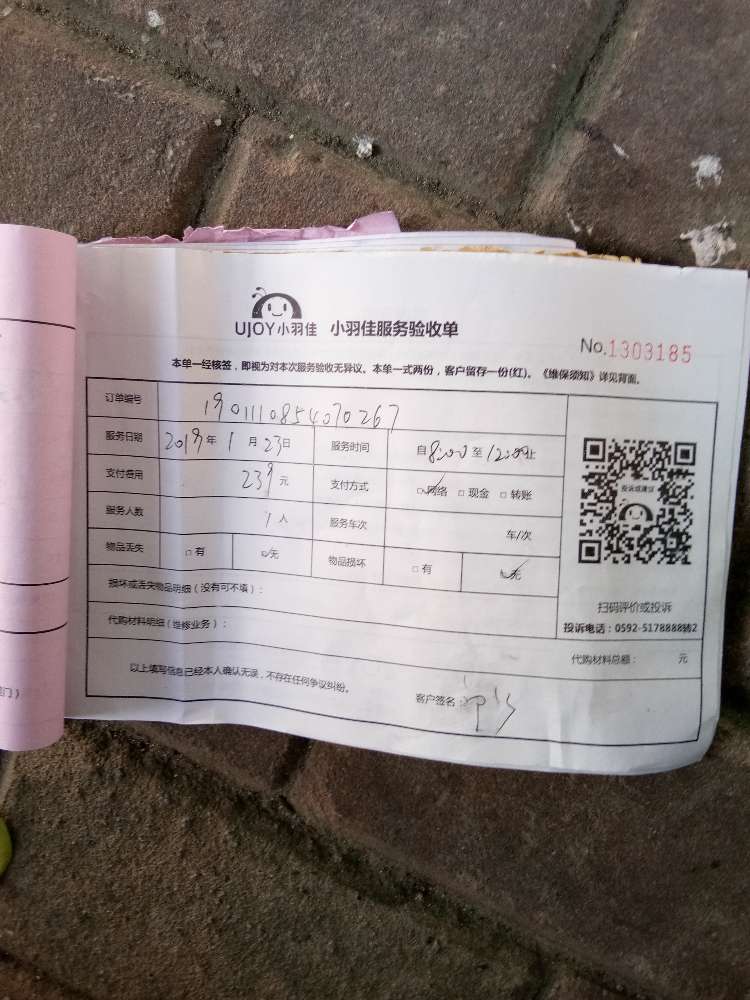 UJOY小羽佳 小羽佳服务验收单
No.1303185
本单一经核签，即视为对本次服务验收无异议。本单一式两份，客户留存一份(红)。《维保须知》详见背面。
订单编号 190111085407026​7
服务日期 2019年1月23日 服务时间 自8:00至12:00止
支付费用 239元 支付方式 ☑网络 □现金 □转账
服务人数 1人 服务车次 车/次
物品丢失 □有 ☑无 物品损坏 □有 ☑无
投诉或建议
损坏或丢失物品明细（没有可不填）：
扫码评价或投诉
代购材料明细（维修业务）：
投诉电话：0592-5178888转2
代购材料总额： 元
以上填写信息已经本人确认无误，不存在任何争议纠纷。
客户签名：
门）